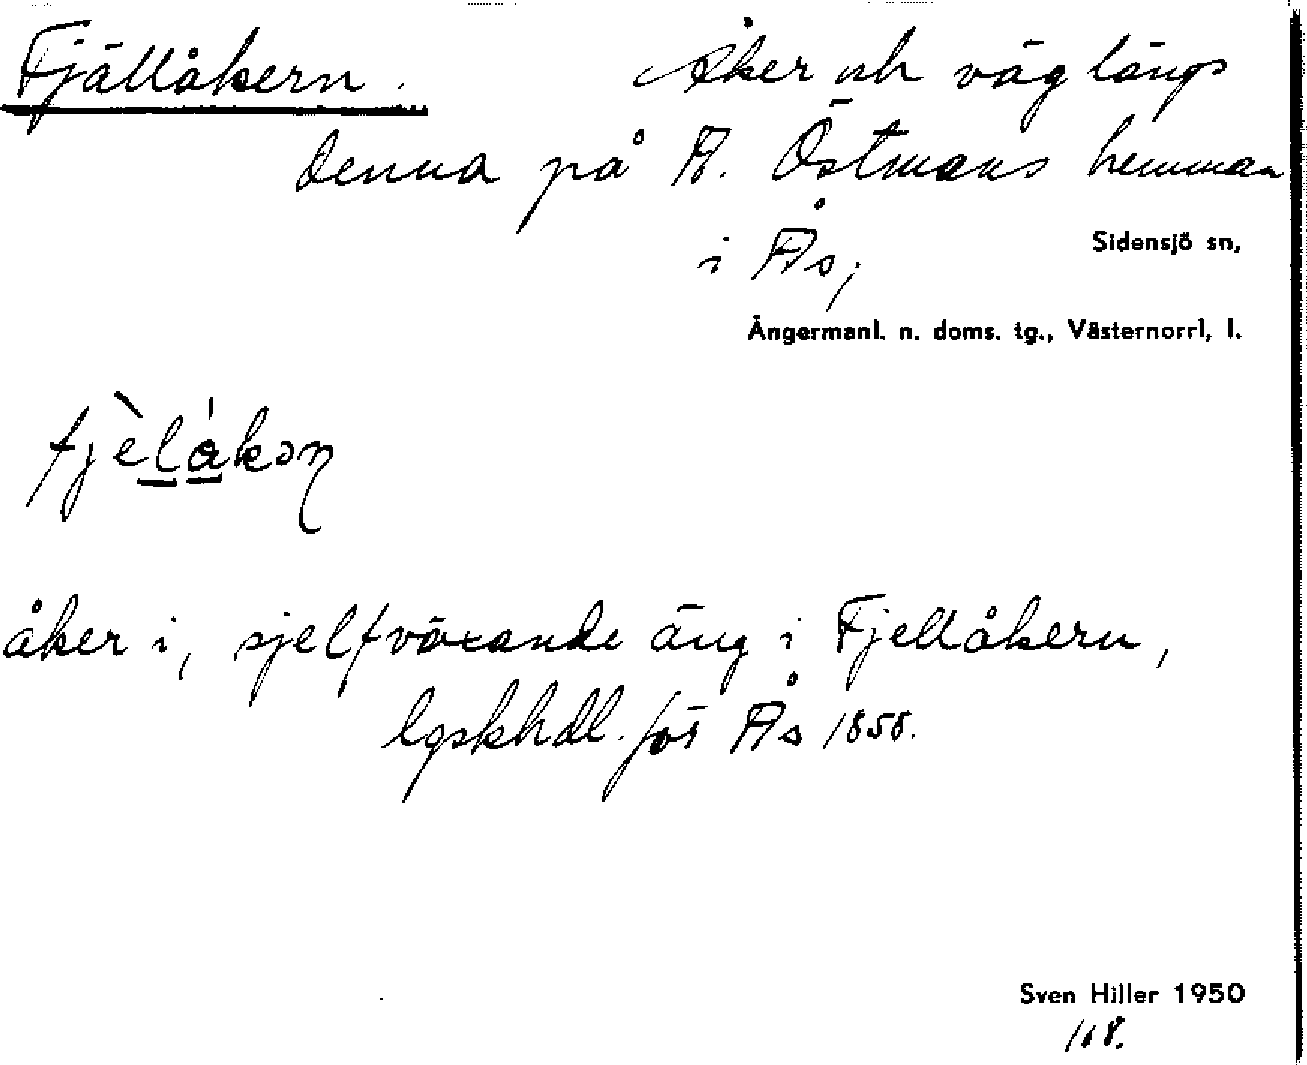 Fjällåkern. Åker och väg längs
denna på A. Östmans hemman
i Ås,
Sidensjö sn,
Ångermanl. n. doms. tg., Västernorrl, l.
fjèlákəɳ
åker i, sjelfväxande äng i Fjellåkern,
lgskhdl. för Ås 1858.
Sven Hiller 1950